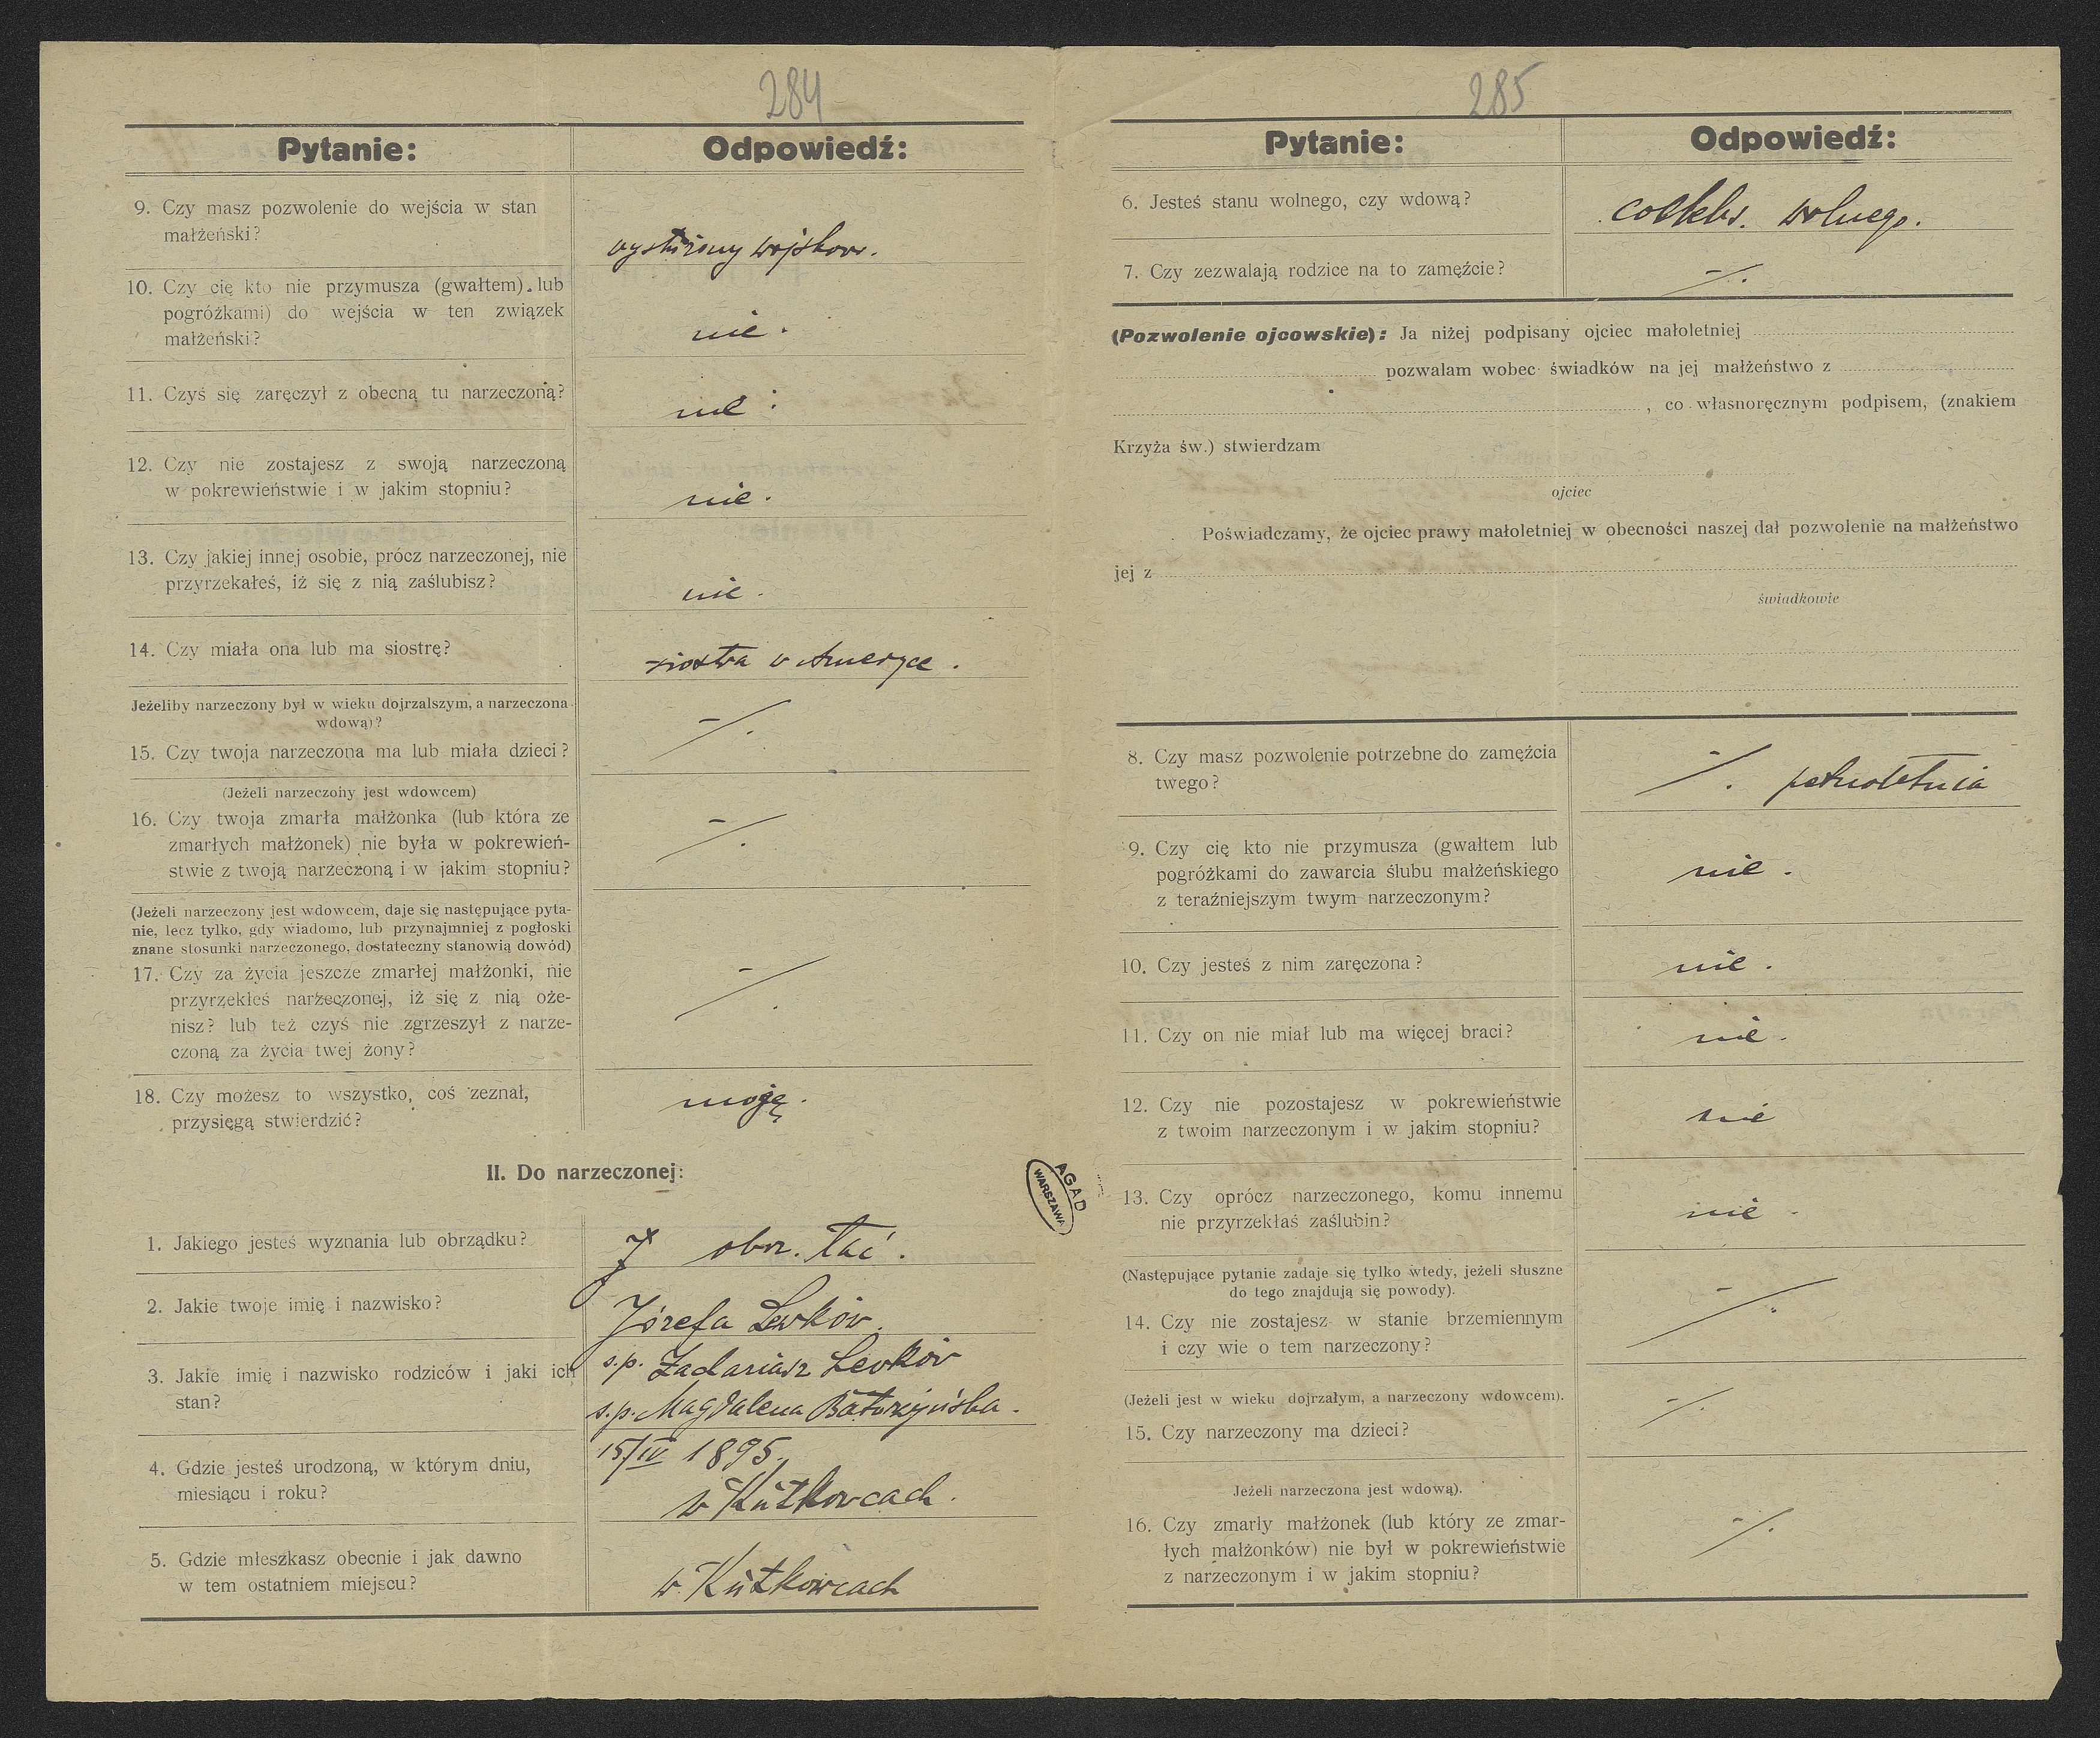 284
Pytanie:
Odpowiedź:
9. Czy masz pozwolenie do wejścia w stan
małżeński?
wysłużony wojskow.
10. Czy cię kto nie przymusza (gwałtem) lub
pogróżkami) do wejścia w ten związek
małżeński?
nie.
11. Czyś się zaręczył z obecną tu narzeczoną?
nie.
12. Czy nie zostajesz z swoją narzeczoną
w pokrewieństwie i w jakim stopniu?
nie.
13. Czy jakiej innej osobie, prócz narzeczonej, nie
przyrzekałeś, iż się z nią zaślubisz?
nie.
14. Czy miała ona lub ma siostrę?
siostra w Ameryce.
Jeżeliby narzeczony był w wieku dojrzalszym, a narzeczona
wdową)?
15. Czy twoja narzeczona ma lub miała dzieci?
-/.
(Jeżeli narzeczony jest wdowcem)
16. Czy twoja zmarła małżonka (lub która ze
zmarłych małżonek) nie była w pokrewień-
stwie z twoją narzeczoną i w jakim stopniu?
-/.
(Jeżeli narzeczony jest wdowcem, daje się następujące pyta-
nie, lecz tylko, gdy wiadomo, lub przynajmniej z pogłoski
znane stosunki narzeczonego, dostateczny stanowią dowód)
17. Czy za życia jeszcze zmarłej małżonki, nie
przyrzekłeś narzeczonej, iż się z nią oże-
nisz? lub też czyś nie zgrzeszył z narze-
czoną za życia twej żony?
-/.
18. Czy możesz to wszystko, coś zeznał,
przysięgą stwierdzić?
mogę.
II. Do narzeczonej:
1. Jakiego jesteś wyznania lub obrządku?
obrz. łać.
2. Jakie twoje imię i nazwisko?
Józefa Lewków.
3. Jakie imię i nazwisko rodziców i jaki ich
stan?
s.p. Zachariasz Lewków
s.p. Magdalena Batorzyńska.
4. Gdzie jesteś urodzoną, w którym dniu,
miesiącu i roku?
15/IV 1895.
w Kutkowcach.
5. Gdzie mieszkasz obecnie i jak dawno
w tem ostatniem miejscu?
w Kutkowcach
AGAD
WARSZAWA
285
Pytanie:
Odpowiedź:
6. Jesteś stanu wolnego, czy wdową?
wolnego.
7. Czy zezwalają rodzice na to zamęźcie?
-/.
(Pozwolenie ojcowskie): Ja niżej podpisany ojciec małoletniej
pozwalam wobec świadków na jej małżeństwo z
, co własnoręcznym podpisem, (znakiem
Krzyża św.) stwierdzam
ojciec
Poświadczamy, że ojciec prawy małoletniej w obecności naszej dał pozwolenie na małżeństwo
jej z
świadkowie
8. Czy masz pozwolenie potrzebne do zamęźcia
twego?
-/. pełnoletnia
9. Czy cię kto nie przymusza (gwałtem lub
pogróżkami do zawarcia ślubu małżeńskiego
z teraźniejszym twym narzeczonym?
nie.
10. Czy jesteś z nim zaręczona?
nie.
11. Czy on nie miał lub ma więcej braci?
nie.
12. Czy nie pozostajesz w pokrewieństwie
z twoim narzeczonym i w jakim stopniu?
nie
13. Czy oprócz narzeczonego, komu innemu
nie przyrzekłaś zaślubin?
nie.
(Następujące pytanie zadaje się tylko wtedy, jeżeli słuszne
do tego znajdują się powody).
14. Czy nie zostajesz w stanie brzemiennym
i czy wie o tem narzeczony?
-/.
(Jeżeli jest w wieku dojrzałym, a narzeczony wdowcem).
15. Czy narzeczony ma dzieci?
-/.
Jeżeli narzeczona jest wdową).
16. Czy zmarły małżonek (lub który ze zmar-
łych małżonków) nie był w pokrewieństwie
z narzeczonym i w jakim stopniu?
-/.